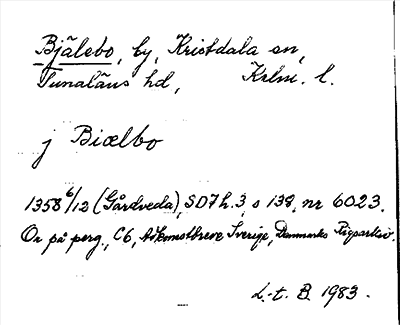 Bjälebo, by, Kristdala sn,
Tunaläns hd, Kalm. l.
j Biælbo
1358 6/12 (Gårdveda), SD7h.3, s 138, nr 6023.
Or på perg., C6, Adkomstbreve Sverige, Danmarks Rigsarkiv.
L.-t. B. 1983.